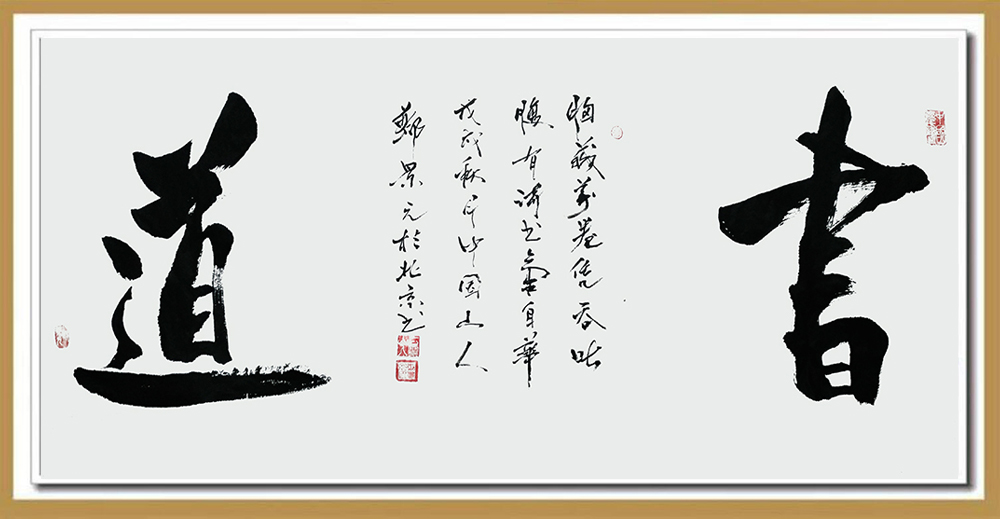 書
胸藏萬卷凭吞吐
腹有诗书氣自華
戊戌秋月中國山人
鄭景元於北京书
道